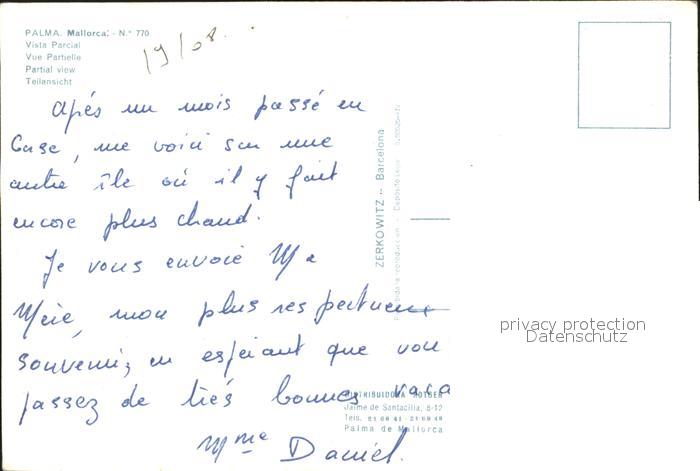 PALMA. Mallorca. - N.° 770
Vista Parcial
Vue Partielle
Partial view
Teilansicht
19/08.
Après un mois passé en
Corse, me voici sur une
autre île où il y fait
encore plus chaud.
Je vous envoie Mme
Mère, mon plus respectueux
souvenir, en espérant que vous
passez de très bonnes vaca
Mme Daniel.
ZERKOWITZ - Barcelona
Prohibida reproducción - Depósito legal
DISTRIBUIDORA ROTGER
Jaime de Santacilia, 8-12
Palma de Mallorca
privacy protection
Datenschutz